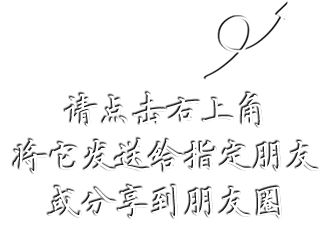 请点击右上角
将它发送给指定朋友
或分享到朋友圈